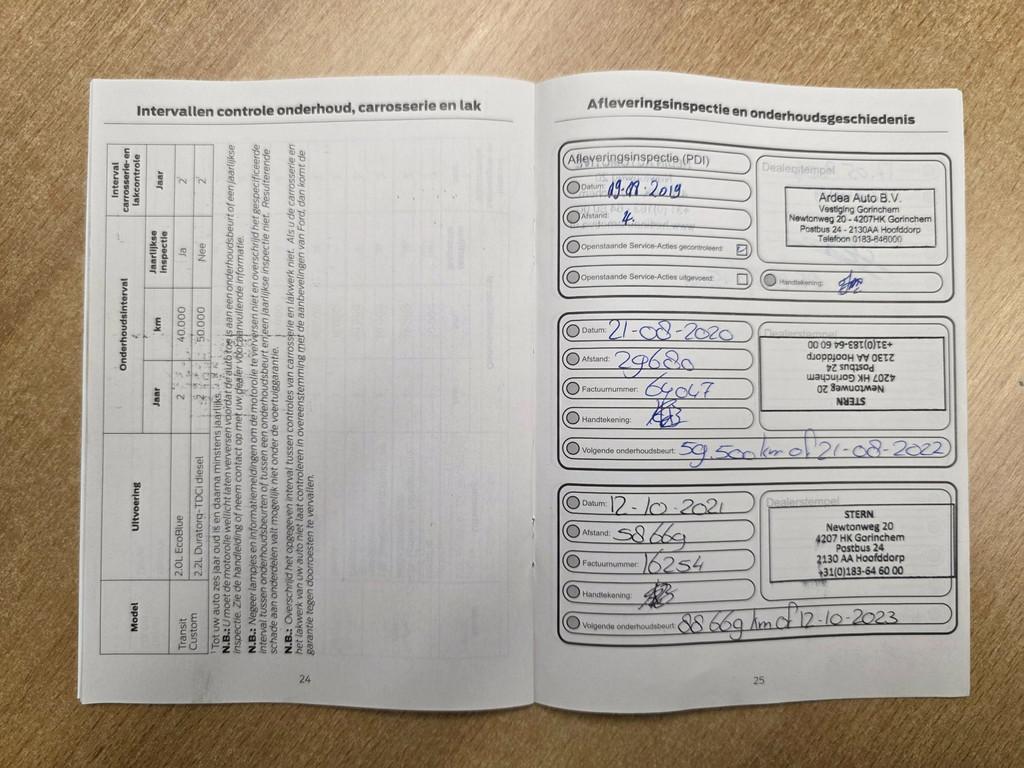 Intervallen controle onderhoud, carrosserie en lak
Model
Uitvoering
Onderhoudsinterval
Interval
carrosserie-en
lakcontrole
Jaar
km
Jaarlijkse
inspectie
Jaar
Transit
Custom
2.0L EcoBlue
2
40.000
Ja
2¹
2.2L Duratorq-TDCi diesel
2
50.000
Nee
2¹
¹ Tot uw auto zes jaar oud is en daarna minstens jaarlijks.
N.B.: U moet de motorolie wellicht laten verversen voordat de auto toe is aan een onderhoudsbeurt of een jaarlijkse
inspectie. Zie de handleiding of neem contact op met uw dealer voor aanvullende informatie.
N.B.: Negeer lampjes en informatiemeldingen om de motorolie te verversen niet en overschrijd het gespecificeerde
interval tussen onderhoudsbeurten of tussen een onderhoudsbeurt en een jaarlijkse inspectie niet. Resulterende
schade aan onderdelen valt mogelijk niet onder de voertuiggarantie.
N.B.: Overschrijd het opgegeven interval tussen controles van carrosserie en lakwerk niet. Als u de carrosserie en
het lakwerk van uw auto niet laat controleren in overeenstemming met de aanbevelingen van Ford, dan komt de
garantie tegen doorroesten te vervallen.
24
Afleveringsinspectie en onderhoudsgeschiedenis
Afleveringsinspectie (PDI)
Datum: 09-09-2019
Afstand: 4.
Openstaande Service-Acties gecontroleerd:
Openstaande Service-Acties uitgevoerd:
Dealerstempel
Ardea Auto B.V.
Vestiging Gorinchem
Newtonweg 20 - 4207HK Gorinchem
Postbus 24 - 2130AA Hoofddorp
Telefoon 0183-646000
Handtekening:
Datum: 21-08-2020
Afstand: 29680
Factuurnummer: 64047
Handtekening:
Volgende onderhoudsbeurt: 59.500km of 21-08-2022
Dealerstempel
STERN
Newtonweg 20
4207 HK Gorinchem
Postbus 24
2130 AA Hoofddorp
+31(0)183-64 60 00
Datum: 12-10-2021
Afstand: 58669
Factuurnummer: 16254
Handtekening:
Volgende onderhoudsbeurt: 88669 km of 12-10-2023
Dealerstempel
STERN
Newtonweg 20
4207 HK Gorinchem
Postbus 24
2130 AA Hoofddorp
+31(0)183-64 60 00
25